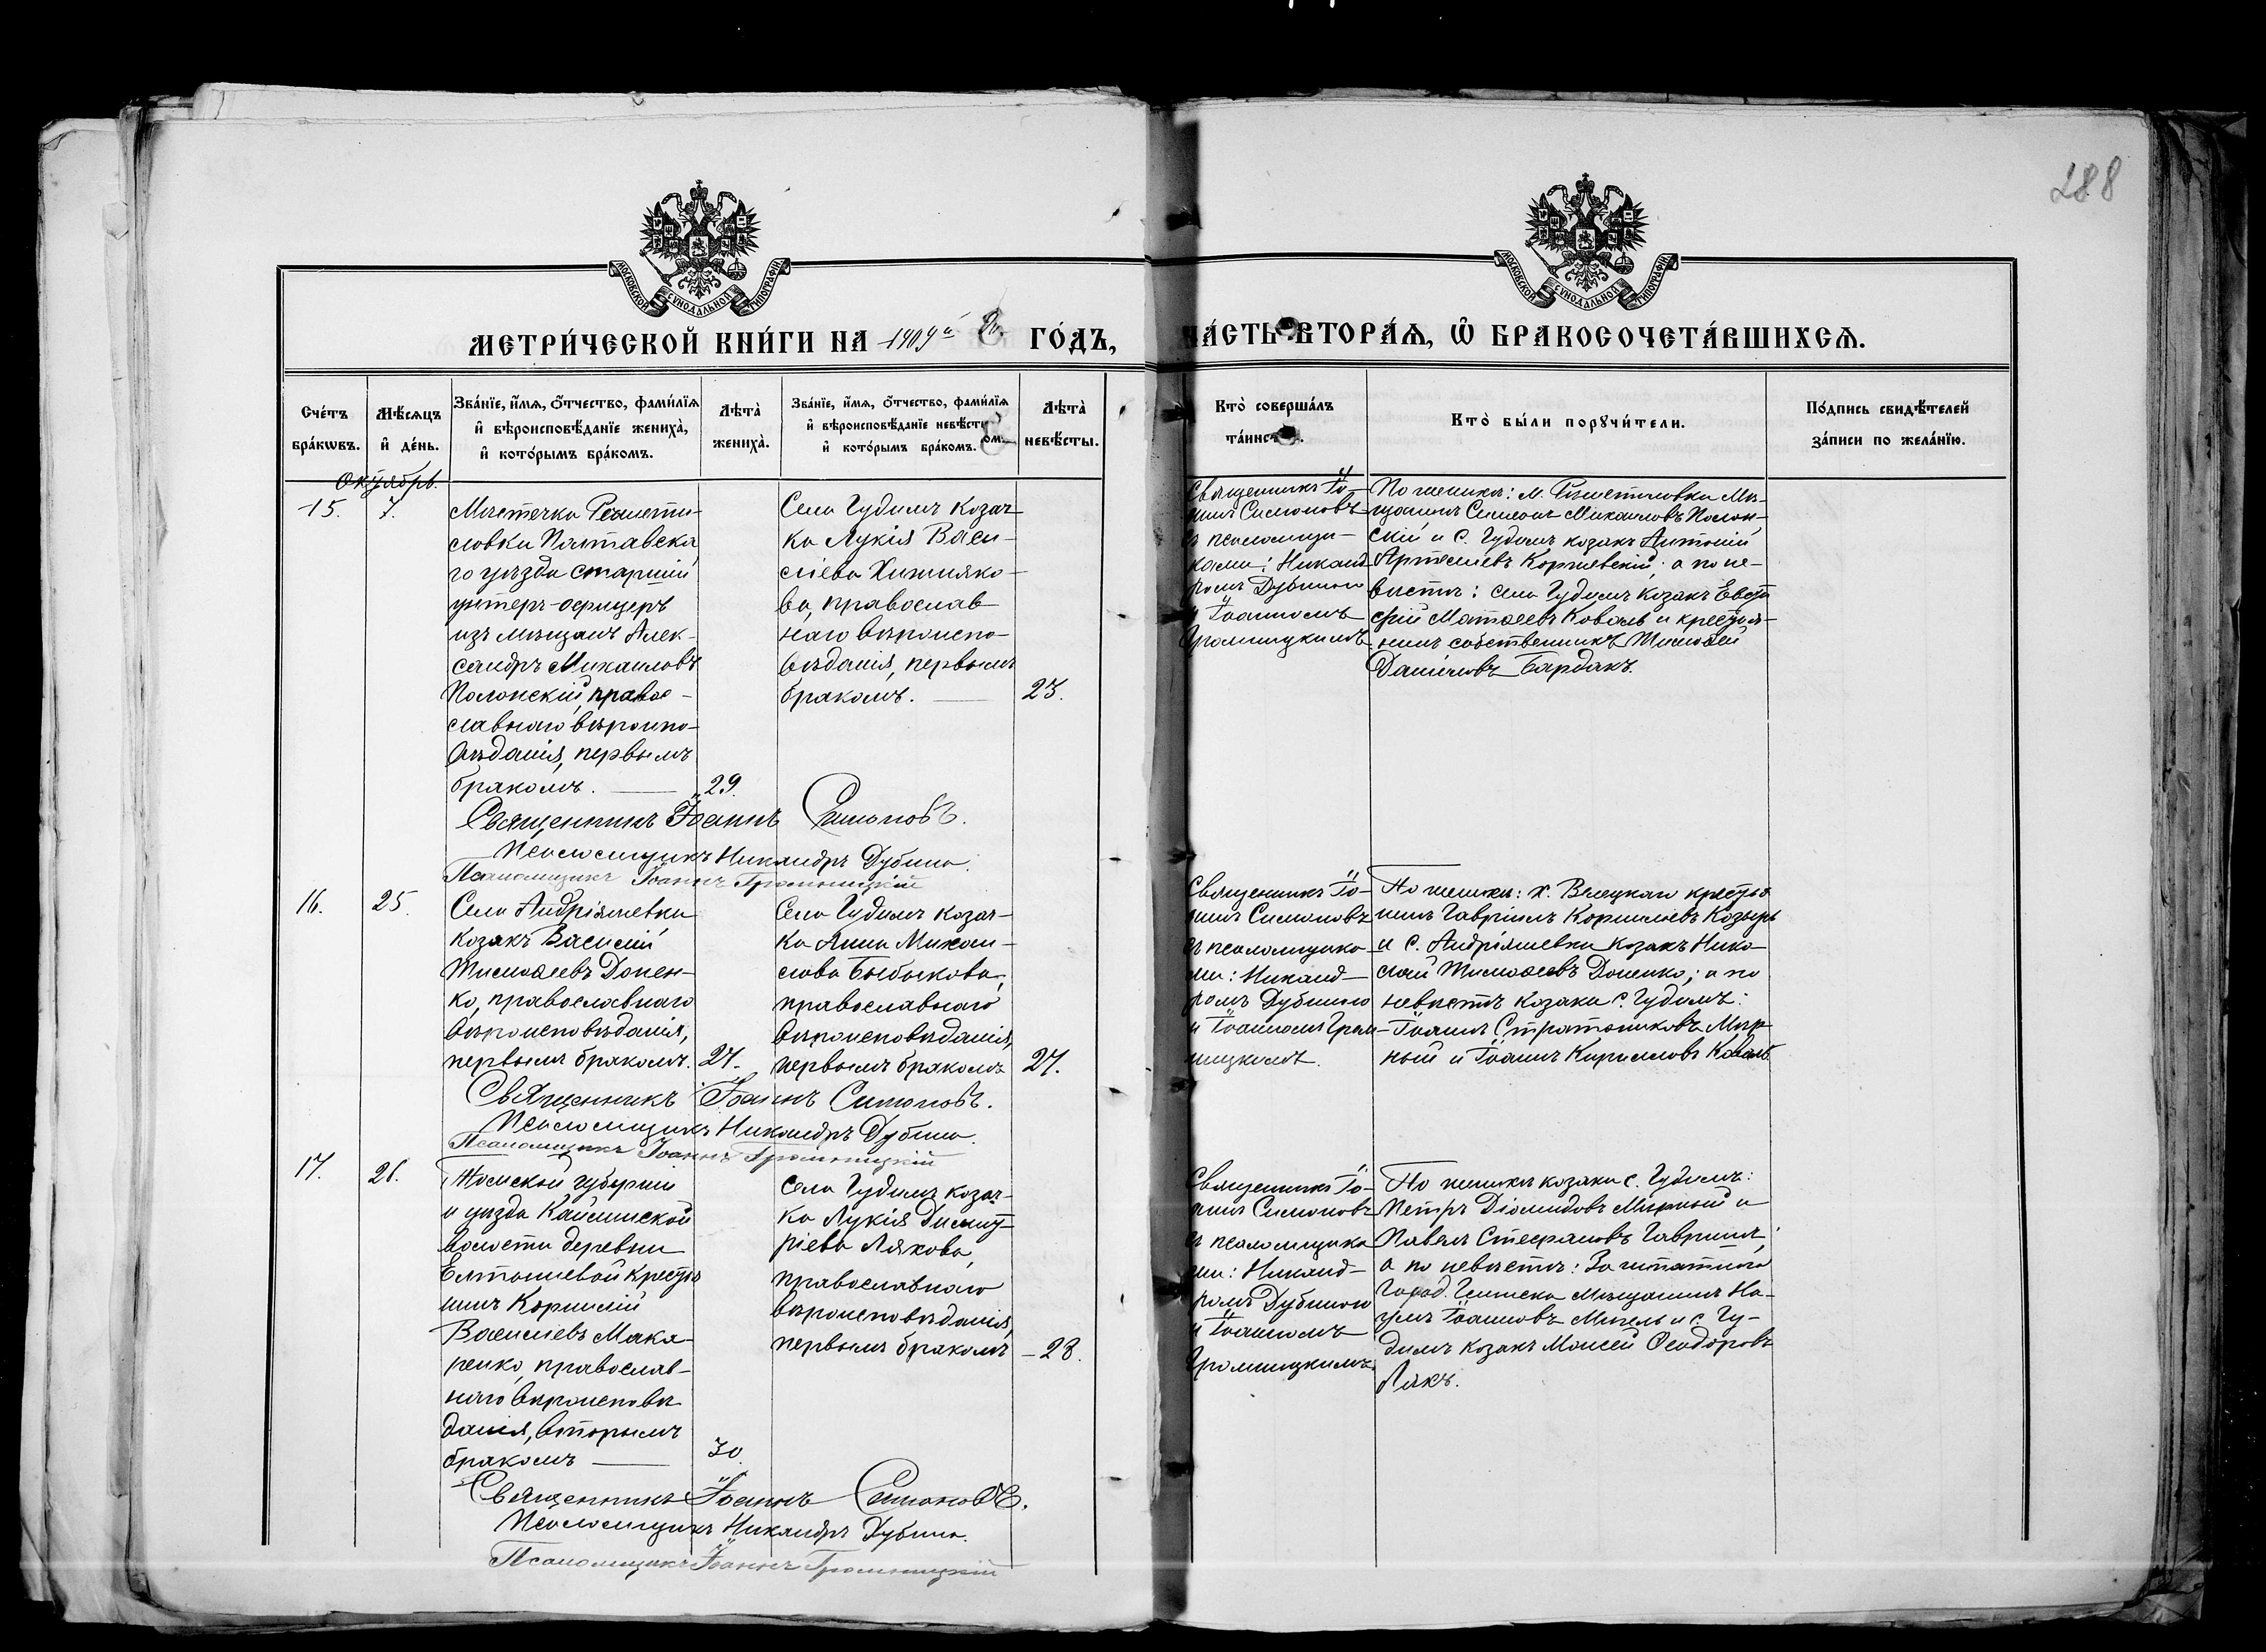 288
МОСКОВСКОЙ СѴНОДАЛЬНОЙ ТИПОГРАФІИ
МОСКОВСКОЙ СѴНОДАЛЬНОЙ ТИПОГРАФІИ
МЕТРИ́ЧЕСКОЙ КНИ́ГИ НА 1909й ГО́ДЪ,
ЧА́СТЬ ВТОРА́Ѧ, Ѽ БРАКОСОЧЕТА́ВШИХСѦ.
Сче́тъ бра́кѡвъ.
Мѣ́сѧцъ и҆ де́нь.
Зва́нїе, и҆́мѧ, ѻ҆́тчество, фами́лїѧ
и҆ вѣроисповѣ́данїе жениха̀,
и҆ кото́рымъ бра́комъ.
Лѣ́та̀ жениха̀.
Зва́нїе, и҆́мѧ, ѻ҆́тчество, фами́лїѧ
и҆ вѣроисповѣ́данїе невѣ́сты
и҆ кото́рымъ бра́комъ.
Лѣ́та̀ невѣ́сты.
Кто̀ соверша́лъ
Кто̀ бы́ли порꙋчи́тели.
По́дпись свидѣ́телей
за́писи по жела́нїю.
Октябрь.
15.
7.
Мѣстечка Решети-
ловки Полтавска
го уѣзда старшій
унтеръ-офицеръ
изъ мѣщанъ Алек-
сандръ Михаиловъ
Полонскій, право-
славнаго вѣроиспо-
вѣданія, первымъ
бракомъ.
29.
Села Гудимъ козач-
ка Лукія Васи-
ліева Хижняко-
ва, православ-
наго вѣроиспо-
вѣданія, первымъ
бракомъ.
23.
Священникъ Іо-
аннъ Симоновъ
съ псаломщи-
ками: Никанд-
ромъ Дубиною
и Іоанномъ
Громницкимъ
По женихѣ: м. Решетиловки мѣ-
щанинъ Симеонъ Михаиловъ Полон-
скій и с. Гудимъ козакъ Антоній
Артемиевъ Корнѣевскій; а по не-
вѣстѣ: села Гудимъ козакъ Евста
фій Матѳеевъ Коваль и крестья-
нинъ собственникъ Тимоѳей
Даніиловъ Бардакъ.
Священникъ Іоаннъ Симоновъ.
Псаломщикъ Никандръ Дубина.
Псаломщикъ Іоаннъ Громницкій
16.
25.
Села Андріяшевки
козакъ Василій
Тимоѳеевъ Донен-
ко, православнаго
вѣроисповѣданія,
первымъ бракомъ.
27.
Села Гудимъ козач-
ка Анна Михаи-
лова Быбыкова,
православнаго
вѣроисповѣданія,
первымъ бракомъ
27.
Священникъ Іо-
аннъ Симоновъ
съ псаломщика-
ми: Никанд-
ромъ Дубиною
и Іоанномъ Гром-
ницкимъ.
По женихѣ: х. Велецкаго крестья
нинъ Гавріилъ Корниліевъ Козырь
и с. Андріяшевки козакъ Нико-
лай Тимоѳеевъ Доненко; а по
невѣстѣ козаки с. Гудимъ:
Іоаннъ Стратониковъ Мир-
ный и Іоаннъ Кирилловъ Коваль
Священникъ Іоаннъ Симоновъ.
Псаломщикъ Никандръ Дубина.
Псаломщикъ Іоаннъ Громницкій
17.
26.
Томской губерніи
и уѣзда Кайлинской
волости деревни
Елтышевой крестья
нинъ Корнилій
Василіевъ Мака-
ренко, православ-
наго вѣроисповѣ
данія, вторымъ
бракомъ
30.
Села Гудимъ козач-
ка Лукія Димит-
ріева Лякова,
православнаго
вѣроисповѣданія,
первымъ бракомъ
28.
Священникъ Іо-
аннъ Симоновъ
съ псаломщика
ми: Никанд-
ромъ Дубиною
и Іоанномъ
Громницкимъ.
По женихѣ козаки с. Гудимъ:
Петръ Діомидовъ Мирный и
Павелъ Стефановъ Гавришъ;
а по невѣстѣ: Заштатнаго
Город. Глинска мѣщанинъ На-
умъ Іоанновъ и с. Гу-
димъ козакъ Моисей Ѳеодоровъ
Лякъ.
Священникъ Іоаннъ Симоновъ.
Псаломщикъ Никандръ Дубина.
Псаломщикъ Іоаннъ Громницкій